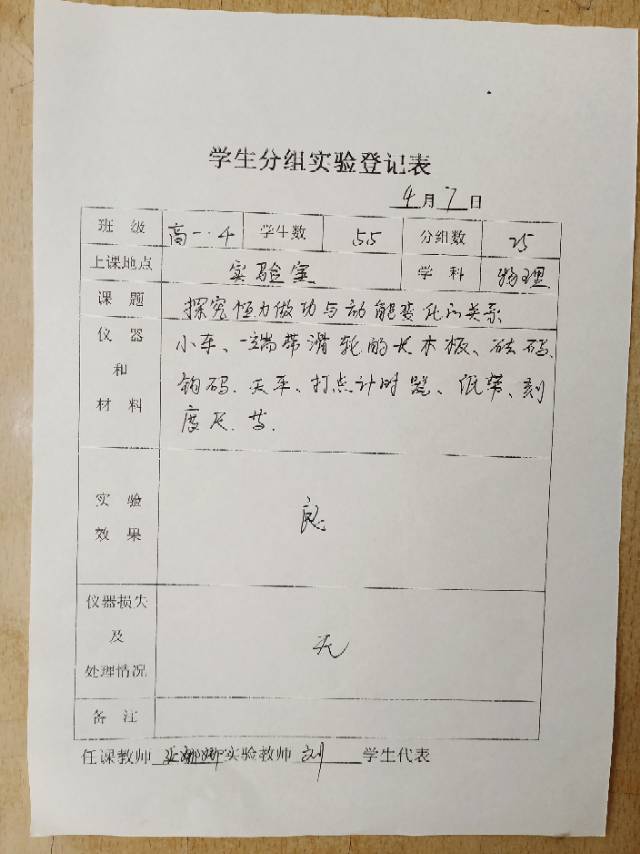 学生分组实验登记表
4月7日
班级 高一.4 学生数 55 分组数 25
上课地点 实验室 学科 物理
课题 探究恒力做功与动能变化的关系
仪器和材料 小车、一端带滑轮的长木板、砝码、
钩码、天平、打点计时器、纸带、刻
度尺.等.
实验效果 良
仪器损失及处理情况 无
备注
任课教师 实验教师 刘 学生代表